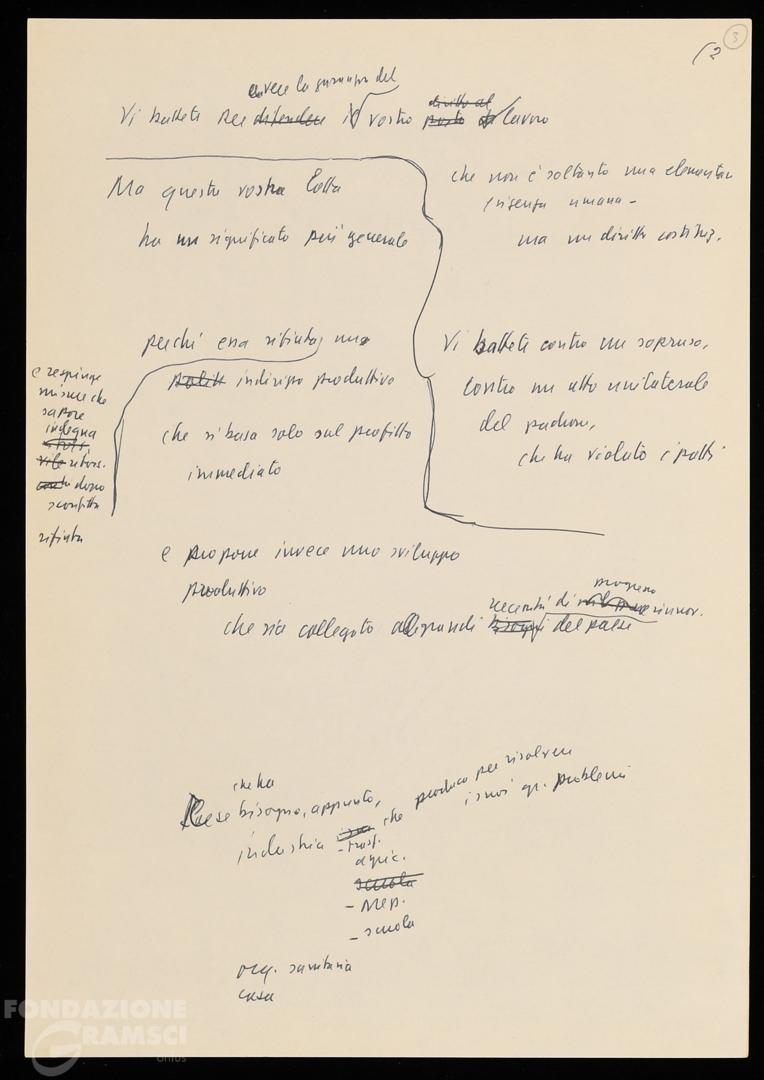 3
(2
avere la garanzia del
Vi battete per difendere il vostro posto di lavoro
diritto al
che non è soltanto una elementare
esigenza umana -
ma un diritto costituz.
Vi battete contro un sopruso,
contro un atto unilaterale
del padrone,
che ha violato i patti
Ma questa vostra lotta
ha un significato più generale
perché essa rifiuta una
politi indirizzo produttivo
che si basa solo sul profitto
immediato
e respinge
misure che
sapore
indegna
vile ritors.
dopo
sconfitta
rifiuta
e propone invece uno sviluppo
produttivo
che sia collegato alle grandi bisogni del paese
necessità di rinnov.
progresso
che ha
Paese bisogno, appunto,
industria che produca per risolvere
i suoi gr. problemi
- trasp.
agric.
scuola
- Mep.
- scuola
org. sanitaria
casa
FONDAZIONE
GRAMSCI
onlus